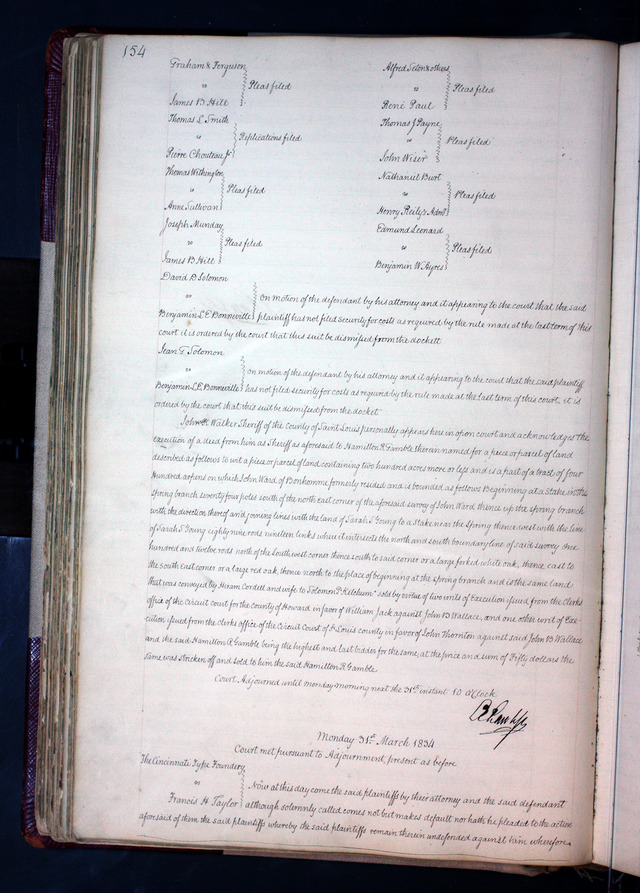 154
Graham & Ferguson
vs } Pleas filed
James B Hill
Thomas L Smith
vs } Replications filed
Pierre Chouteau Jr
Thomas Withington
vs } Pleas filed
Anne Sullivan
Joseph Munday
vs } Pleas filed
James B Hill
Alfred Seton & others
vs } Pleas filed
René Paul
Thomas J Payne
vs } Pleas filed
John Wiser
Nathaniel Burt
vs } Pleas filed
Henry Reily's Admr
Edmund Leonard
vs } Pleas filed
Benjamin W. Ayres
David B Solomon
vs } On motion of the defendant by his attorney and it appearing to the court that the said
Benjamin L. E. Bonneville plaintiff has not filed security for costs as required by the rule made at the last term of this
court it is ordered by the court that this suit be dismissed from the dockett
Jean G Solomon
vs } On motion of the defendant by his attorney and it appearing to the court that the said plaintiff
Benjamin L. E. Bonneville has not filed security for costs as required by the rule made at the last term of this court it is
ordered by the court that this suit be dismissed from the docket
John K Walker Sheriff of the County of Saint Louis personally appears here in open court and acknowledges the
execution of a deed from him as Sheriff as aforesaid to Hamilton R Gamble therein named for a piece or parcel of land
described as follows to wit a piece or parcel of land containing two hundred acres more or less and is a part of a tract of four
Hundred arpens on which John Ward of Bonhomme formerly resided and is bounded as follows Beginning at a stake in the
spring branch seventy four poles south of the north east corner of the aforesaid survey of John Ward thence up the spring branch
with the direction thereof and joining lines with the land of Sarah S Young to a stake near the spring thence west with the line
of Sarah S Young eighty nine rods nineteen links where it intersects the north and south boundary line of said survey one
hundred and twelve rods north of the southwest corner thence south to said corner or a large forked white oak, thence east to
the south east corner or a large red oak, thence north to the place of beginning at the spring branch and is the same land
that was conveyed by Hiram Cordell and wife to Solomon P. Ketchum" sold by virtue of two writs of Execution issued from the Clerks
office of the circuit court for the county of Howard in favor of William Jack against John B Wallace, and one other writ of Exe-
cution issued from the clerks office of the Circuit Court of St Louis county in favor of John Thornton against said John B Wallace
and the said Hamilton R Gamble being the highest and last bidder for the same, at the price and sum of Fifty dollars the
same was stricken off and sold to him the said Hamilton R. Gamble
Court Adjourned until monday morning next the 31st instant 10 O'Clock
Monday 31st March 1834
Court met pursuant to Adjournment, present as before
The Cincinnati Type Foundery
vs } Now at this day come the said plaintiffs by their attorney and the said defendant
Francis H Taylor although solemnly called comes not but makes default nor hath he pleaded to the action
aforesaid of them the said plaintiffs whereby the said plaintiffs remain therein undefended against him wherefore